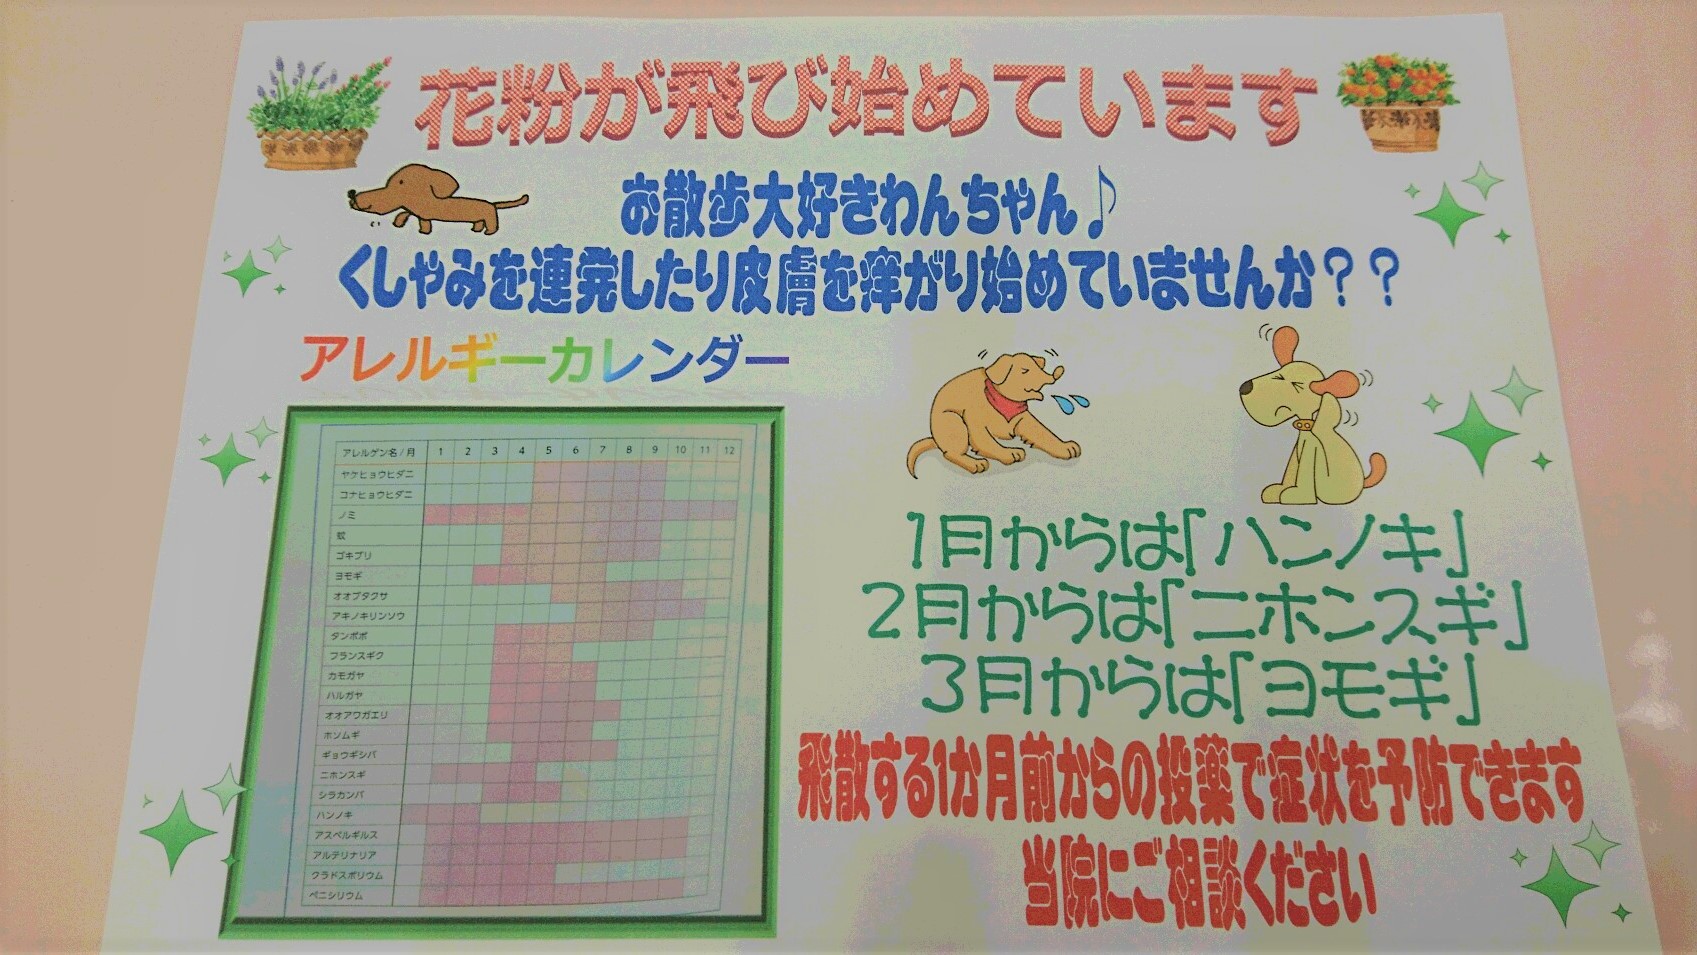 花粉が飛び始めています
お散歩大好きわんちゃん♪
くしゃみを連発したり皮膚を痒がり始めていませんか？？
アレルギーカレンダー
アレルゲン名/月 1 2 3 4 5 6 7 8 9 10 11 12
ヤケヒョウヒダニ
コナヒョウヒダニ
ノミ
蚊
ゴキブリ
ヨモギ
オオブタクサ
アキノキリンソウ
タンポポ
フランスギク
カモガヤ
ハルガヤ
オオアワガエリ
ホソムギ
ギョウギシバ
ニホンスギ
シラカンバ
ハンノキ
アスペルギルス
アルテリナリア
クラドスポリウム
ペニシリウム
1月からは「ハンノキ」
2月からは「ニホンスギ」
3月からは「ヨモギ」
飛散する1か月前からの投薬で症状を予防できます
当院にご相談ください